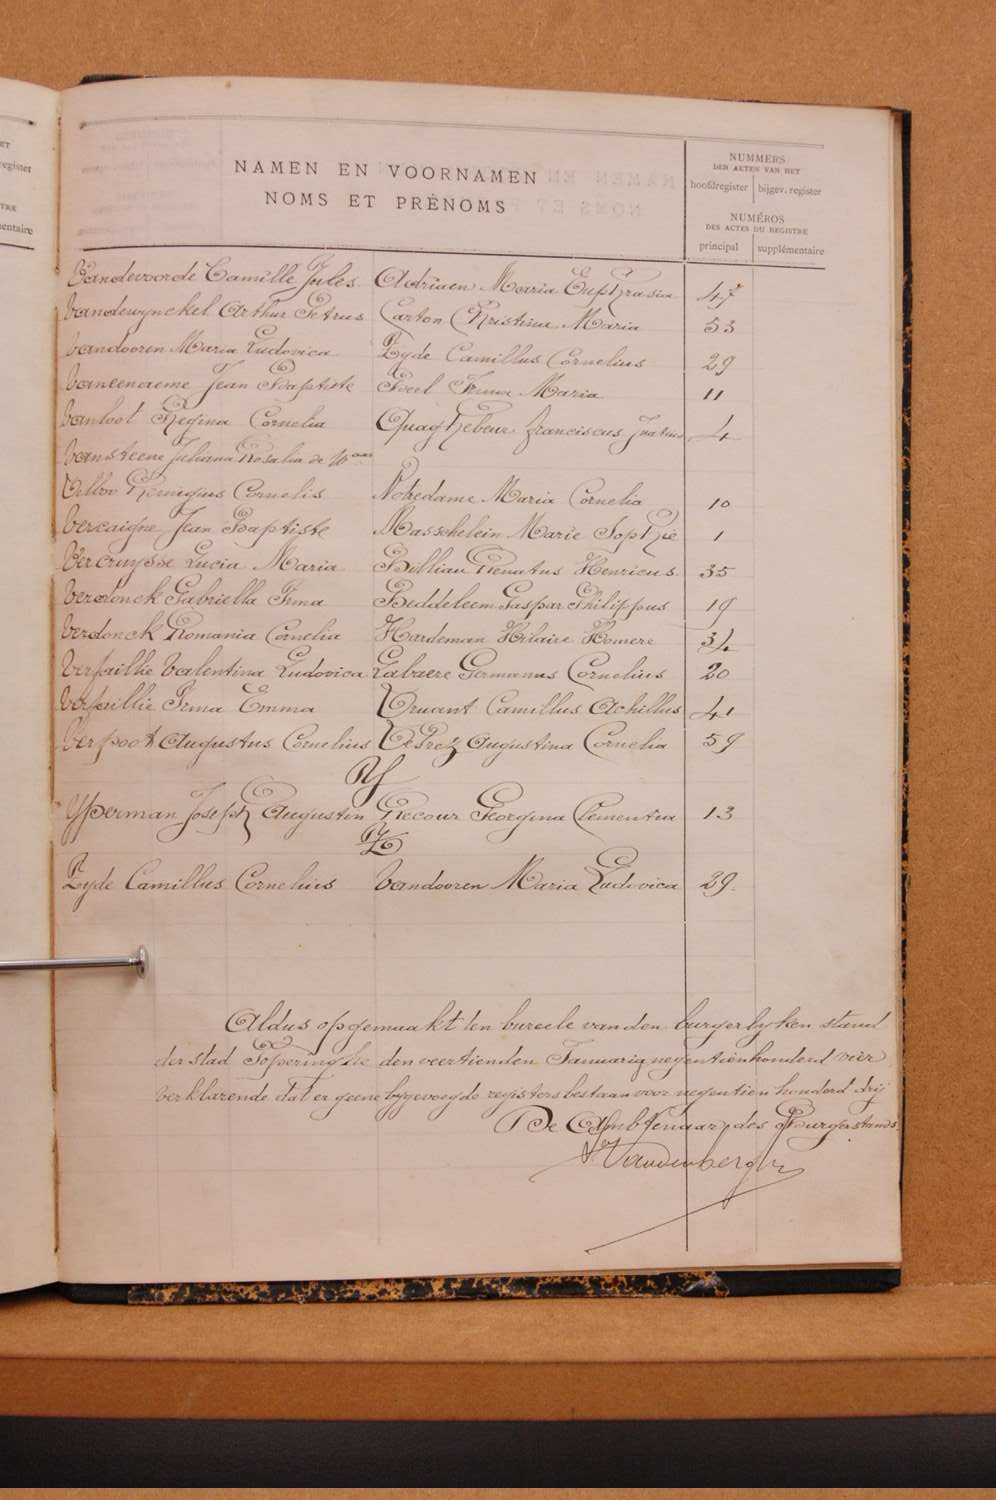 ET
register
TRE
mentaire
NAMEN EN VOORNAMEN
NOMS ET PRÉNOMS
NUMMERS
DER AKTEN VAN HET
hoofdregister bijgev. register
NUMÉROS
DES ACTES DU REGISTRE
principal supplémentaire
Vandevoorde Camille Jules Adriaen Maria Euphrasia 47
Vandewynckel Arthur Petrus Carton Christina Maria 53
Vandooren Maria Ludovica Zyde Camillus Cornelius 29
Vaneenaeme Jean Baptiste Roel Irma Maria 11
Vanloot Regina Cornelia Quaghebeur franciscus 4
Vansteene Juliana Rosalia de
Remigius Cornelis Notredame Maria Cornelia 10
Vercaigne Jean Baptiste Masschelein Marie Sophie 1
Vercruysse Lucia Maria Billiau Renatus Henricus 35
Verdonck Gabriella Irma Beddeleem Gaspar Philippus 19
Verdonck Romania Cornelia Hardeman Hilaire Homere 34
Versaillie Valentina Ludovica Labaere Germanus Cornelius 20
Versaillie Irma Emma Druant Camillus Achillus 41
Verpoot Augustus Cornelius Deprez Augustina Cornelia 59
Y
Yperman Joseph Augustin Recour Georgina Clementia 13
Z
Zyde Camillus Cornelius Vandooren Maria Ludovica 29.
Aldus opgemaakt ten bureele van den burgerlyken stand
der stad Poperinghe den veertienden Januarij negentienhonderd vier
verklarende dat er geene bygevoegde registers bestaan voor negentien honderd drij
De Ambtenaar des Burgerstands.
Vandenberghe